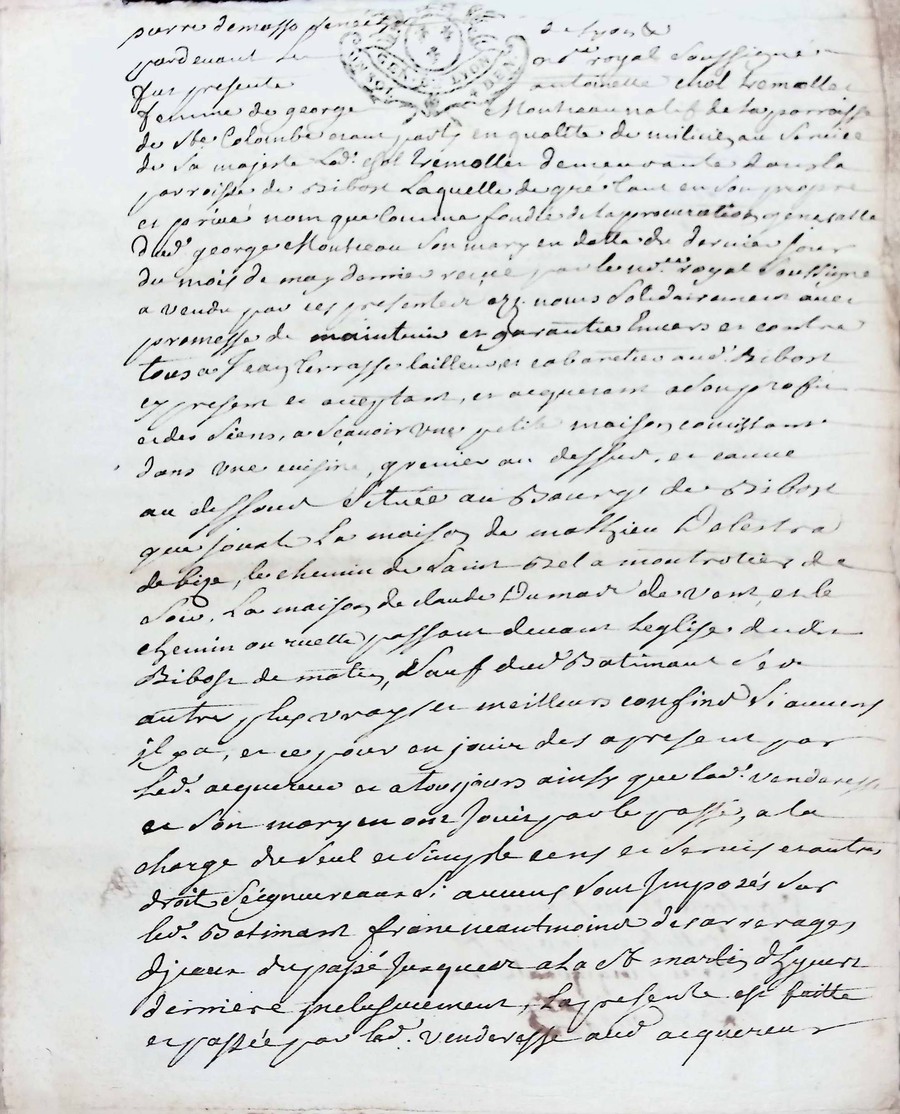 pardevant Le no.re royal Soussigné
fut presente antoinette chol tremollet
femme de george Monteau natif de la parroisse
de Ste Colombe etant party en qualité de milice au Service
de Sa majesté Lad. chol tremollet demeurante dans la
parroisse de Bibost Laquelle de gré tant en Son propre
et privé nom que Comme fondée de la procuration generalle
dud. george Monteau Son mary en datte du dernier Jour
du mois de may dernier reçue par le no.re royal Soussigné
a vendu par ces presentes et nous Solidairement avec
promesse de maintenir et garantir Envers et contre
tous a Jean terrasse tailleur et cabaretier aud. Bibost
cy present et acceptant, et acquerant a Son profit
et des Siens, a Sçavoir une petite maison consistant
dans une cuisine, grenier au dessus, et cave
au dessous Scituée au Bourg de Bibost
que joint La maison de mathieu Dalestra
de bize, le chemin de Saint Bel a montrotier de
Soir, La maison de claude Dumas de vent, et le
chemin ou ruette passant devant Leglise dudit
Bibost de matin, Sauf dud. Batiment Ses
autre plus vrays et meilleurs confins Si aucuns
il ya, et ce pour en jouir des apresent par
Led. acquereur et a tousjours ainsy que lad. venderesse
et Son mary en ont Jouit par le passé, a la
charge du Seul et Simple cens et Servis et autres
droit Seigneureaux Si aucuns Sont Imposés Sur
led. Batimant franc neantmoins des arrerages
d'jceux du passé Jusques a La St martin d'hyvert
derniere Inclusivement, La presente est faitte
et passée par lad. venderesse aud. acquereur